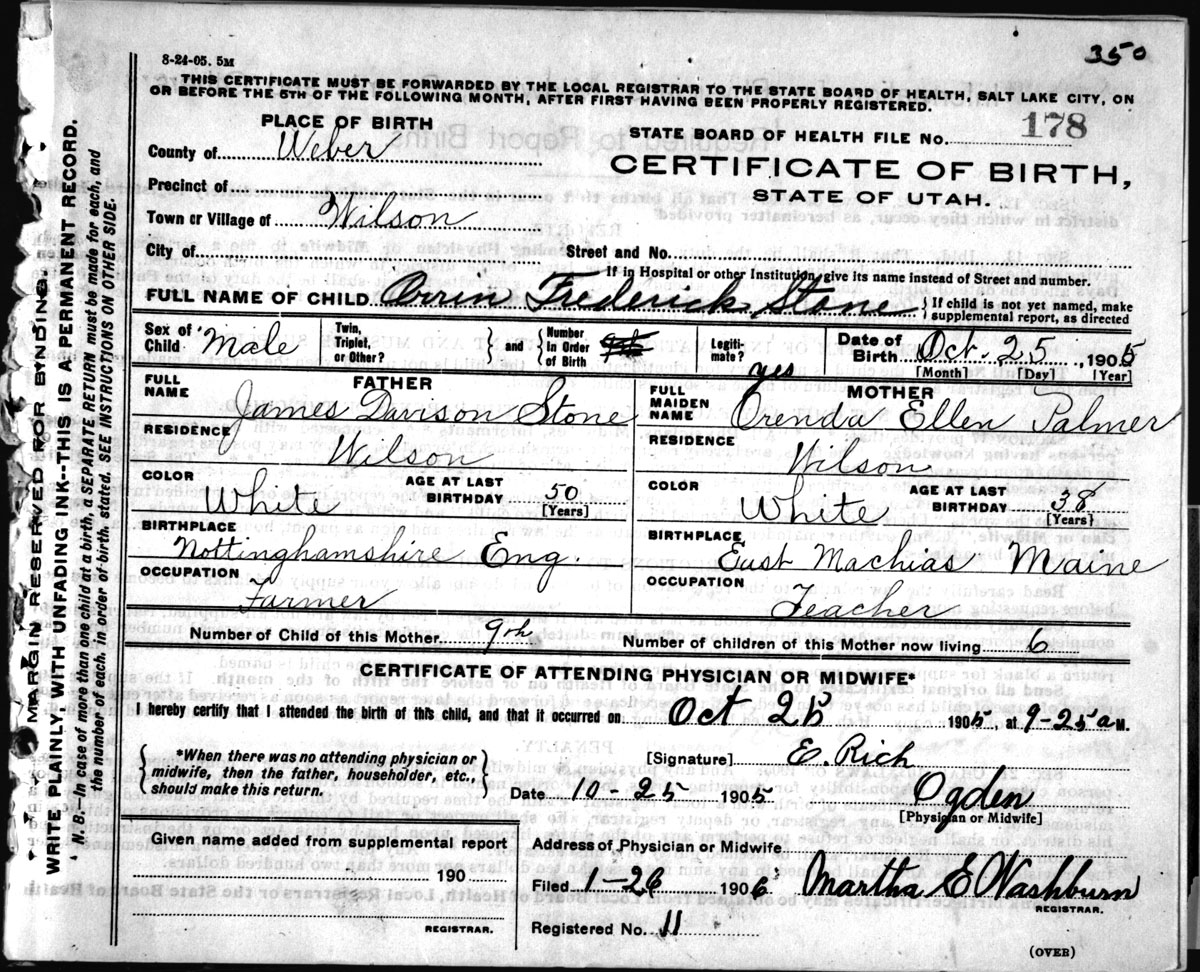 350
8-24-05. 5M
THIS CERTIFICATE MUST BE FORWARDED BY THE LOCAL REGISTRAR TO THE STATE BOARD OF HEALTH, SALT LAKE CITY, ON
OR BEFORE THE 5TH OF THE FOLLOWING MONTH, AFTER FIRST HAVING BEEN PROPERLY REGISTERED.
PLACE OF BIRTH
STATE BOARD OF HEALTH FILE No. 178
County of Weber
CERTIFICATE OF BIRTH,
STATE OF UTAH.
Precinct of
Town or Village of Wilson
City of Street and No.
If in Hospital or other Institution, give its name instead of Street and number.
FULL NAME OF CHILD Orrin Frederick Stone { If child is not yet named, make
supplemental report, as directed
Sex of Child Male Twin, Triplet, or Other? } and { Number in Order of Birth Legiti-mate? yes Date of Birth Oct. 25, 1905
[Month] [Day] [Year]
FATHER
FULL NAME James Davison Stone
RESIDENCE
Wilson
COLOR White AGE AT LAST BIRTHDAY 50
[Years]
BIRTHPLACE
Nottinghamshire Eng.
OCCUPATION
Farmer
MOTHER
FULL MAIDEN NAME Orenda Ellen Palmer
RESIDENCE
Wilson
COLOR White AGE AT LAST BIRTHDAY 38
[Years]
BIRTHPLACE
East Machias Maine
OCCUPATION
Teacher
Number of Child of this Mother 9th Number of children of this Mother now living 6
CERTIFICATE OF ATTENDING PHYSICIAN OR MIDWIFE*
I hereby certify that I attended the birth of this child, and that it occurred on Oct 25 1905, at 9-25 a M.
{ *When there was no attending physician or
midwife, then the father, householder, etc.,
should make this return. }
[Signature] E. Rich
Date 10-25 1905 Ogden
[Physician or Midwife]
Given name added from supplemental report
190
REGISTRAR.
Address of Physician or Midwife
Filed 1-26 1906 Martha E Washburn
REGISTRAR.
Registered No. 11
(OVER)
MARGIN RESERVED FOR BINDING
WRITE PLAINLY WITH UNFADING INK--THIS IS A PERMANENT RECORD.
N. B.—In case of more than one child at a birth, a SEPARATE RETURN must be made for each, and
the number of each, in order of birth, stated. SEE INSTRUCTIONS ON OTHER SIDE.